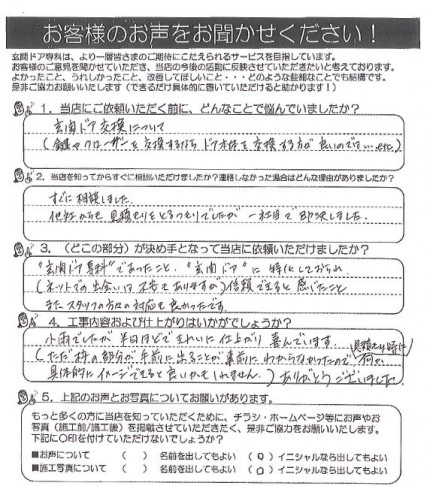 お客様のお声をお聞かせください！
玄関ドア専科は、より一層皆さまのご期待にこたえられるサービスを目指しています。
お客様のご意見を聞かせていただき、当店の今後の活動に反映させていただきたいと考えております。
よかったこと、うれしかったこと、改善してほしいこと・・・どのような些細なことでも結構です。
是非ご協力お願いいたします（できるだけ具体的に書いていただけると助かります！）
1．当店にご依頼いただく前に、どんなことで悩んでいましたか？
玄関ドア交換について
（鍵やクローザーを交換するなら、ドア本体を交換する方が良いのでは…etc）
2．当店を知ってからすぐに相談いただけましたか？連絡しなかった場合はどんな理由がありましたか？
すぐに相談しました。
他社からも見積もりをとるつもりでしたが一社目で即決しました。
3．（どこの部分）が決め手となって当店に依頼いただけましたか？
"玄関ドア専科"であったこと。"玄関ドア"に特化しておられ
（ネットでの出会いは不安もありますが）信頼できると感じたこと
また、スタッフの方々の対応も良かったです。
4．工事内容および仕上がりはいかがでしょうか？
小雨でしたが半日ほどできれいに仕上がり喜んでいます。
（ただ枠の部分が手前に出ることが事前にわからなかったので 見積もり時に
具体的にイメージできると良いかもしれません。）ありがとうございました。
5．上記のお声とお写真についてお願いがあります。
もっと多くの方に当店を知っていただくために、チラシ・ホームページ等にお声やお
写真（施工前/施工後）を掲載させていただきたく、是非ご協力をお願いいたします。
下記に〇印を付けていただけないでしょうか？
■お声について （ ） 名前を出してもよい （○）イニシャルなら出してもよい
■施工写真について （ ） 名前を出してもよい （○）イニシャルなら出してもよい